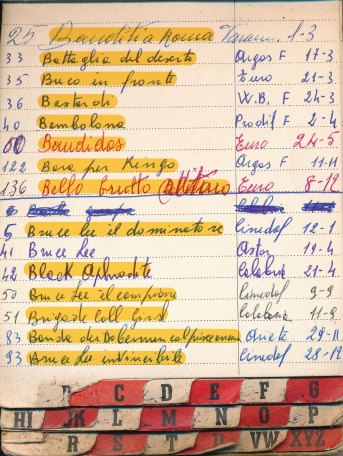 25 Banditi a Roma Varam. 1-3
33 Battaglia del deserto Argos F 17-3
35 Buco in fronte Euro 21-3
36 Bastardi W.B. F 24-3
40 Bambolona Prodif 2-4
60 Bandidos Euro 24-5
122 Bara per Ringo Argos F 11-11
136 Bello brutto cretino Euro 8-12
5 Bruce Lee il dominatore Cinedaf 12-1
41 Bruce Lee Astor 19-4
42 Black Aphrodite Calabria 21-4
50 Bruce Lee il campione Cinedaf 9-9
51 Brigade Call Girls Calabria 11-9
83 Banda dei Dobermen colpisce ancora Ariete 29-11
93 Bruce Lee invincibile Cinedaf 28-12
C D E F G
HI JK L M N O P
R S T U VW XYZ